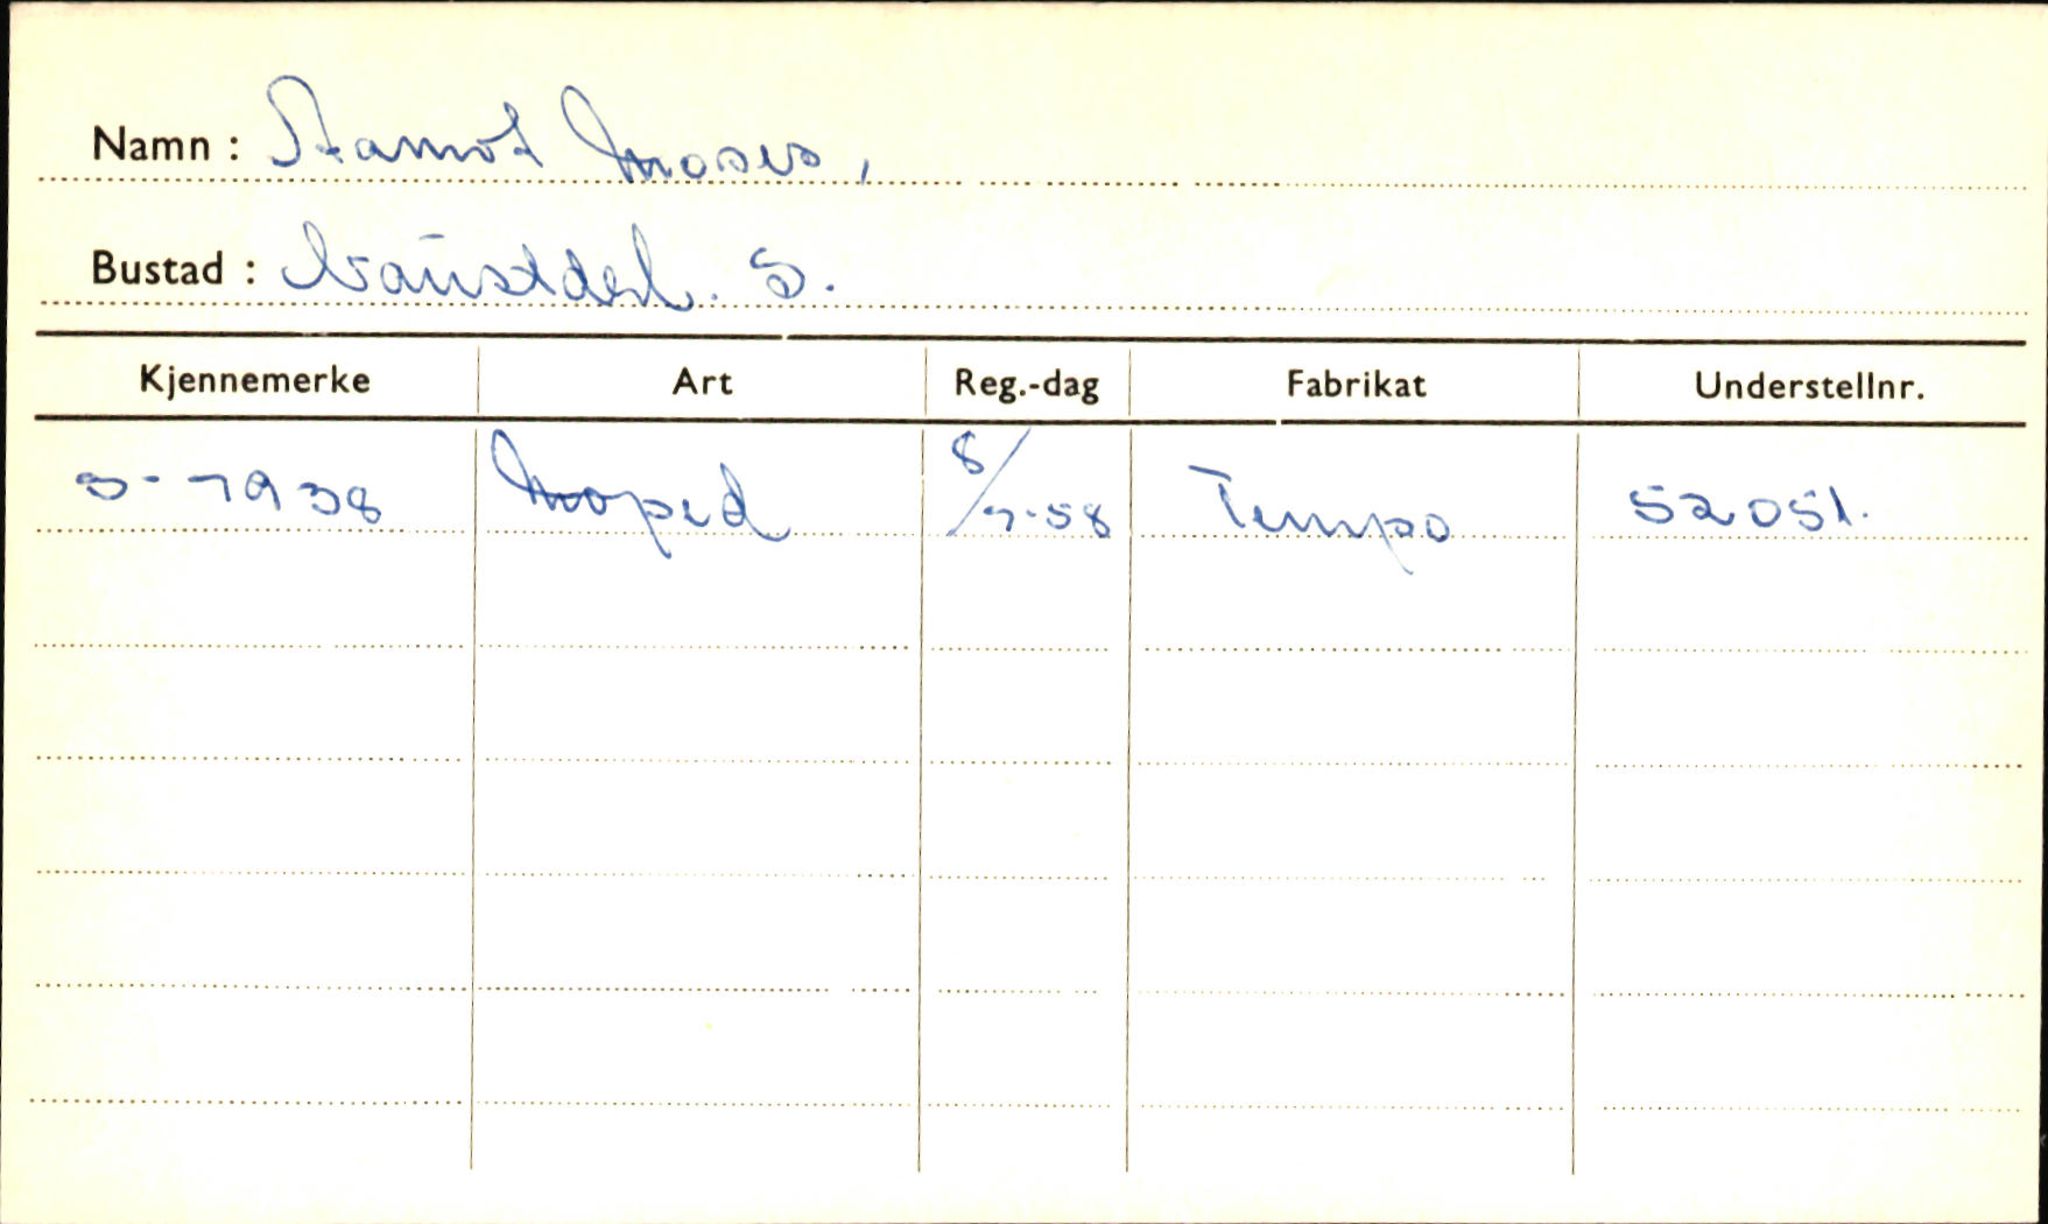 Namn : Stamøt Moses,
Bustad : Naustdal. S.
Kjennemerke Art Reg.-dag Fabrikat Understellnr.
S-7938 Moped 8/7-58 Tempo 52051.